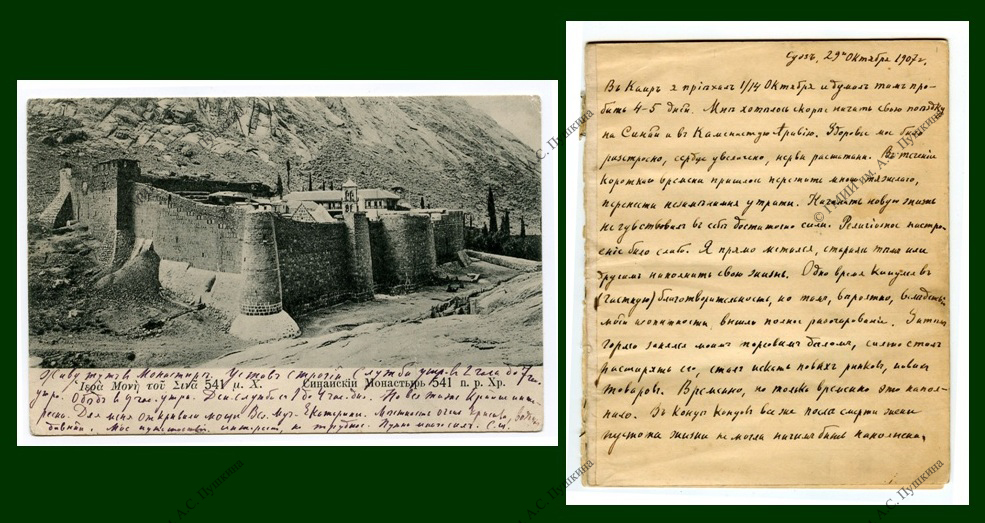 Живу тутъ въ Монастырѣ. Уставъ строгій. Служба утр. въ 2 часа до 7 ч.
Ἱερὰ Μονὴ τοῦ Σινᾶ 541 μ. Χ. Синайскій Монастырь 541 п. р. Хр.
утра. Обѣдъ въ 9 час. утра. Дневн. служба съ 1 до 4 час. дня. Но все таки крайне инте-
ресно. Для меня открывали мощи Вел. Муч. Екатерины. Мѣстность очень красива,
Мое путешествіе интересн., но трудное. Нужно много силъ. С. Щ.
Суэзъ, 29го Октября 1907 г.
Въ Каиръ я пріѣхалъ 1/14 Октября и думалъ тамъ про-
быть 4-5 дней. Мнѣ хотѣлось скорѣе начать свою поѣздку
на Синай и въ Каменистую Аравію. Здоровье мое было
разстроено, сердце увеличено, нервы расшатаны. Въ теченіе
короткаго времени пришлось пережить много тяжелаго,
перенести незамѣнимыя утраты. Начинать новую жизнь
не чувствовалъ въ себѣ достаточно силы. Религіозное настрое-
ніе было слабо. Я прямо метался, старался тѣмъ или
другимъ наполнить свою жизнь. Одно время кинулся въ
(частную) благотворительность, но тамъ, вѣроятно, вслѣдствіе
моей неопытности, вышло полное разочарованіе. Затѣмъ
горячо занялся моимъ торговымъ дѣломъ, сильно сталъ
расширять его, сталъ искать новыхъ рынковъ, новыхъ
товаровъ. Временно, но только временно это напол-
нило. Въ концѣ концовъ все же послѣ смерти жены
пустота жизни не могла ничѣмъ быть наполнена,
© ГМИИ им. А.С. Пушкина